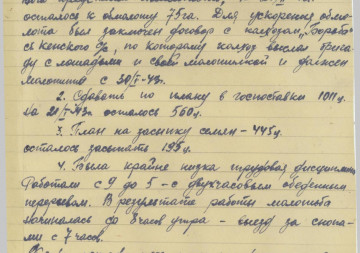 осталось к обмолоту 75га. Для ускорения обмо-
лота был заключен договор с колхозом „Борьба"
с/с, по которому колхоз выслал брига-
ду с лошадьми и своей молотилкой и должен
молотить с 20/I-43г.
2. Сдавать по плану в госпоставки 1011ц.
На 21/I-43г. осталось 560ц.
3. План на засыпку семян - 445ц.
осталось засыпать 195ц.
4. Была крайне низка трудовая дисциплина
Работали с 9 до 5 - с двухчасовым обеденным
перерывом. В результате работы молотьба
начиналась с 8 часов утра - выезд за снопа-
ми с 7 часов.